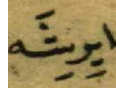 ايريشَه